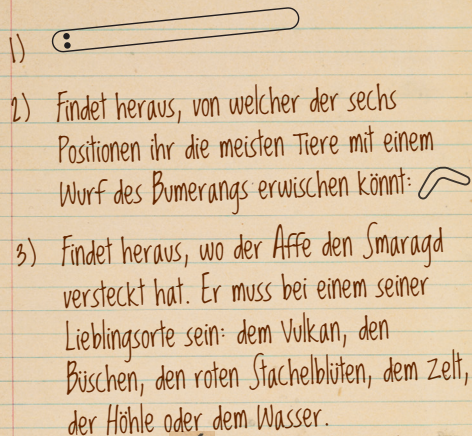 1)
2) Findet heraus, von welcher der sechs
Positionen ihr die meisten Tiere mit einem
Wurf des Bumerangs erwischen könnt:
3) Findet heraus, wo der Affe den Smaragd
versteckt hat. Er muss bei einem seiner
Lieblingsorte sein: dem Vulkan, den
Büschen, den roten Stachelblüten, dem Zelt,
der Höhle oder dem Wasser.